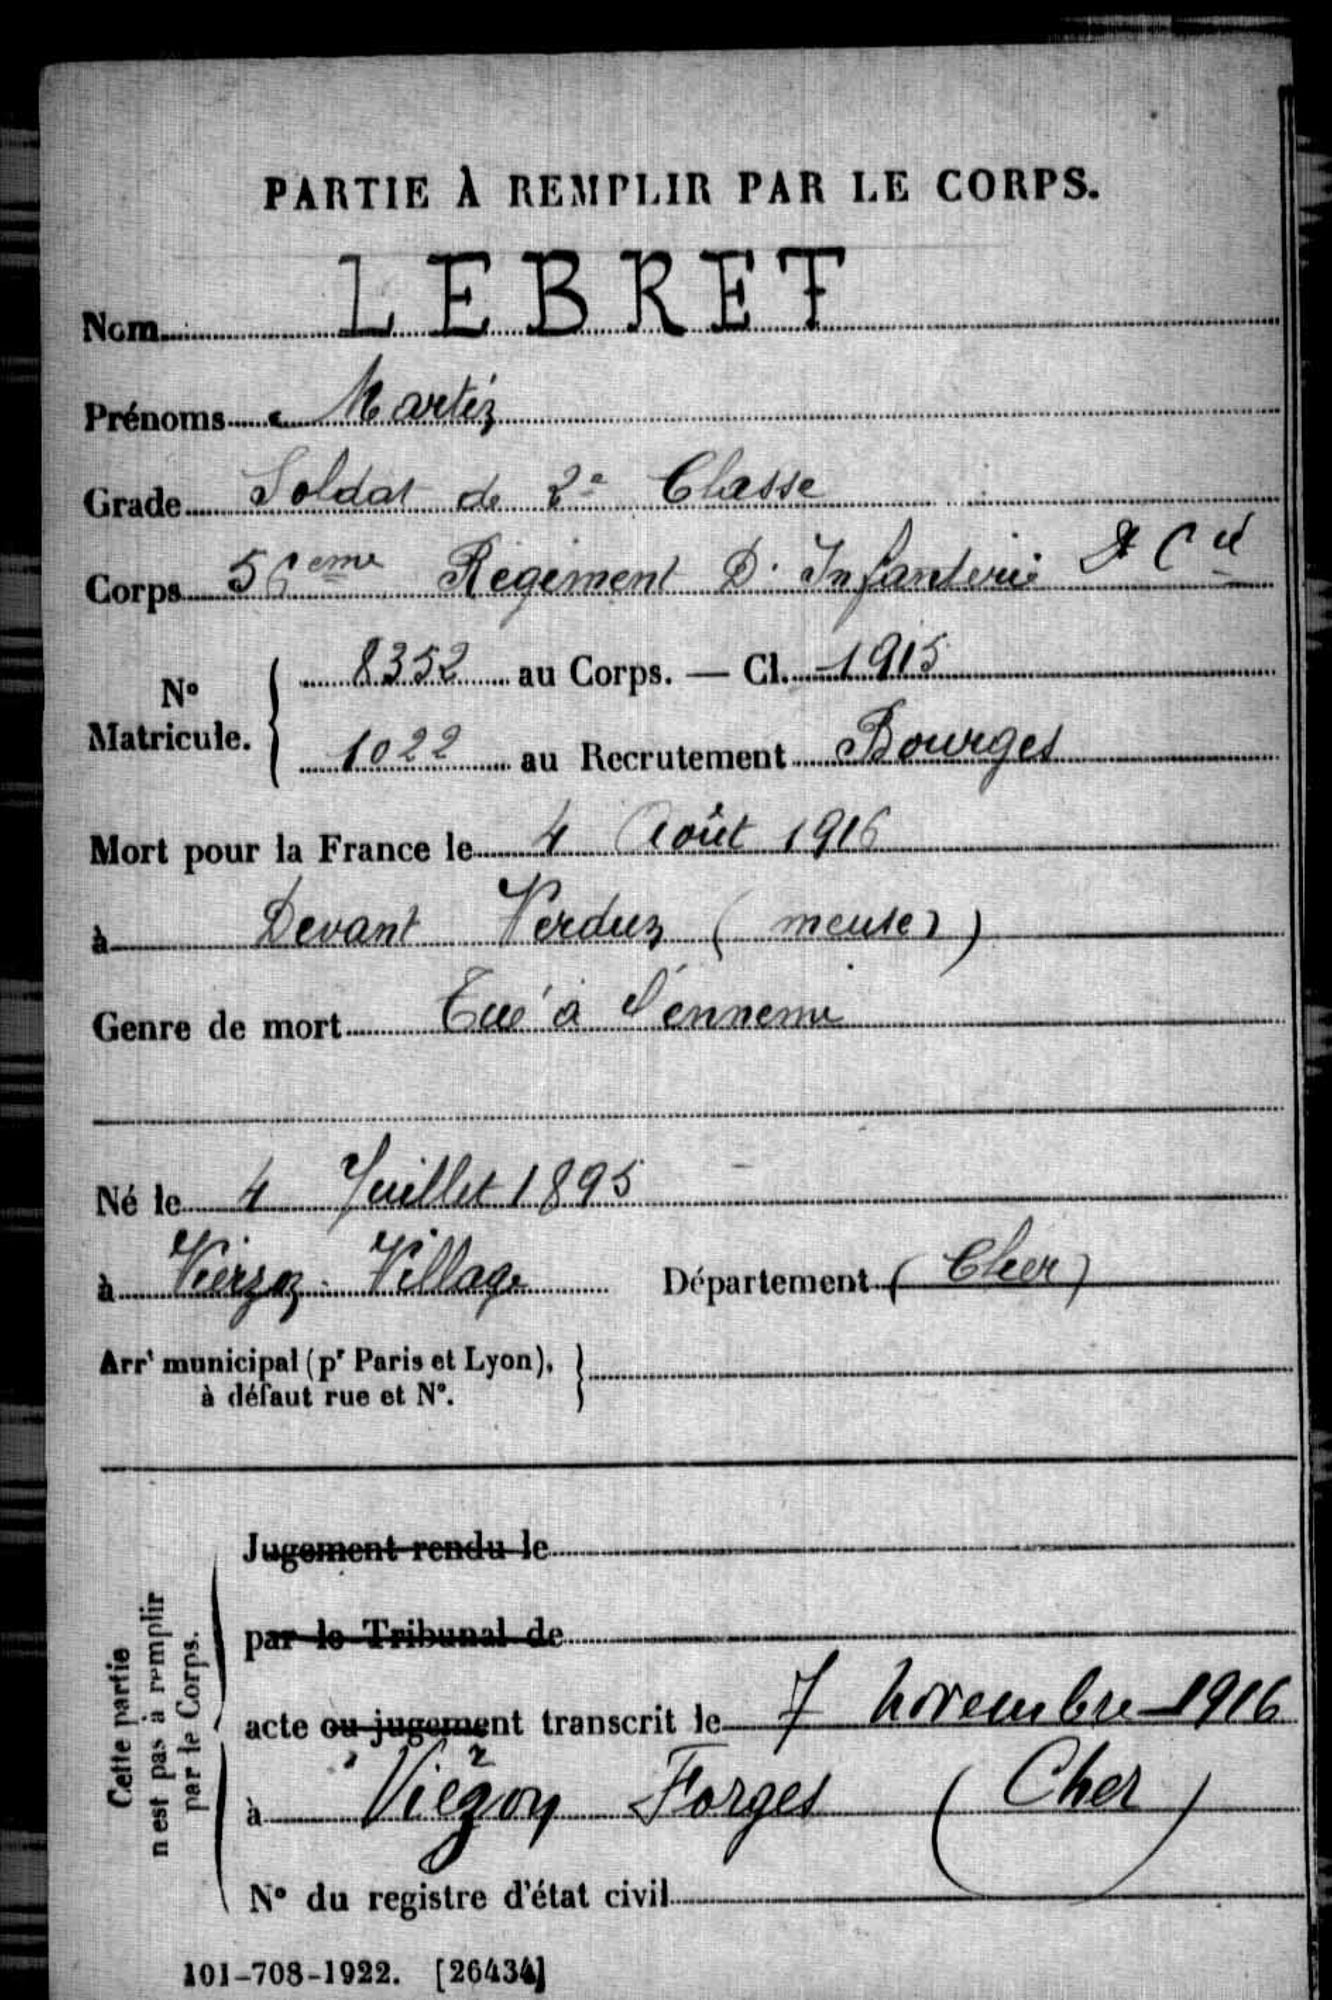 PARTIE À REMPLIR PAR LE CORPS.
Nom LEBRET
Prénoms Martin
Grade Soldat de 2e Classe
Corps 56eme Régiment D'Infanterie
No Matricule. 8352 au Corps. — Cl. 1915
1022 au Recrutement Bourges
Mort pour la France le 4 Août 1916
à Devant Verdun (meuse)
Genre de mort Tué à l'ennemi
Né le 4 Juillet 1895
à Vierzon-Village Département (Cher)
Arrt municipal (pr Paris et Lyon),
à défaut rue et N°.
Cette partie
n'est pas à remplir
par le Corps.
Jugement rendu le
par le Tribunal de
acte ou jugement transcrit le 7 novembre 1916
à Vierzon Forges (Cher)
N° du registre d'état civil
101-708-1922. [26434]